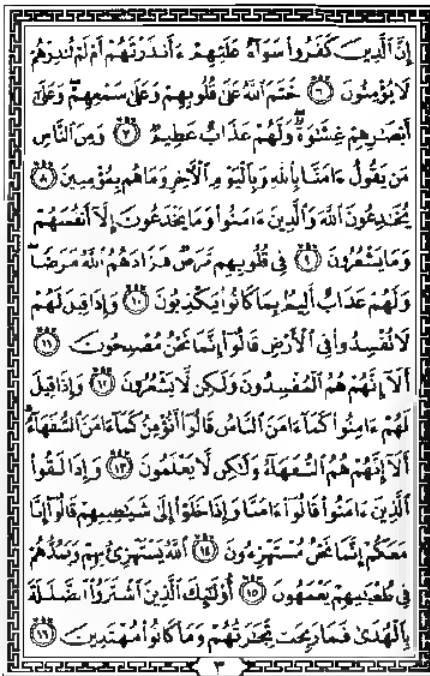 إِنَّ ٱلَّذِينَ كَفَرُواْ سَوَآءٌ عَلَيْهِمْ ءَأَنذَرْتَهُمْ أَمْ لَمْ تُنذِرْهُمْ
لَا يُؤْمِنُونَ ۝٦ خَتَمَ ٱللَّهُ عَلَىٰ قُلُوبِهِمْ وَعَلَىٰ سَمْعِهِمْ ۖ وَعَلَىٰٓ
أَبْصَٰرِهِمْ غِشَٰوَةٌ ۖ وَلَهُمْ عَذَابٌ عَظِيمٌ ۝٧ وَمِنَ ٱلنَّاسِ
مَن يَقُولُ ءَامَنَّا بِٱللَّهِ وَبِٱلْيَوْمِ ٱلْأَخِرِ وَمَا هُم بِمُؤْمِنِينَ ۝٨
يُخَٰدِعُونَ ٱللَّهَ وَٱلَّذِينَ ءَامَنُواْ وَمَا يَخْدَعُونَ إِلَّآ أَنفُسَهُمْ
وَمَا يَشْعُرُونَ ۝٩ فِي قُلُوبِهِم مَّرَضٌ فَزَادَهُمُ ٱللَّهُ مَرَضًا ۖ
وَلَهُمْ عَذَابٌ أَلِيمٌۢ بِمَا كَانُواْ يَكْذِبُونَ ۝١٠ وَإِذَا قِيلَ لَهُمْ
لَا تُفْسِدُواْ فِي ٱلْأَرْضِ قَالُوٓاْ إِنَّمَا نَحْنُ مُصْلِحُونَ ۝١١
أَلَآ إِنَّهُمْ هُمُ ٱلْمُفْسِدُونَ وَلَٰكِن لَّا يَشْعُرُونَ ۝١٢ وَإِذَا قِيلَ
لَهُمْ ءَامِنُواْ كَمَآ ءَامَنَ ٱلنَّاسُ قَالُوٓاْ أَنُؤْمِنُ كَمَآ ءَامَنَ ٱلسُّفَهَآءُ ۗ
أَلَآ إِنَّهُمْ هُمُ ٱلسُّفَهَآءُ وَلَٰكِن لَّا يَعْلَمُونَ ۝١٣ وَإِذَا لَقُواْ
ٱلَّذِينَ ءَامَنُواْ قَالُوٓاْ ءَامَنَّا وَإِذَا خَلَوْاْ إِلَىٰ شَيَٰطِينِهِمْ قَالُوٓاْ إِنَّا
مَعَكُمْ إِنَّمَا نَحْنُ مُسْتَهْزِءُونَ ۝١٤ ٱللَّهُ يَسْتَهْزِئُ بِهِمْ وَيَمُدُّهُمْ
فِي طُغْيَٰنِهِمْ يَعْمَهُونَ ۝١٥ أُوْلَٰٓئِكَ ٱلَّذِينَ ٱشْتَرَوُاْ ٱلضَّلَٰلَةَ
بِٱلْهُدَىٰ فَمَا رَبِحَت تِّجَٰرَتُهُمْ وَمَا كَانُواْ مُهْتَدِينَ ۝١٦
٣